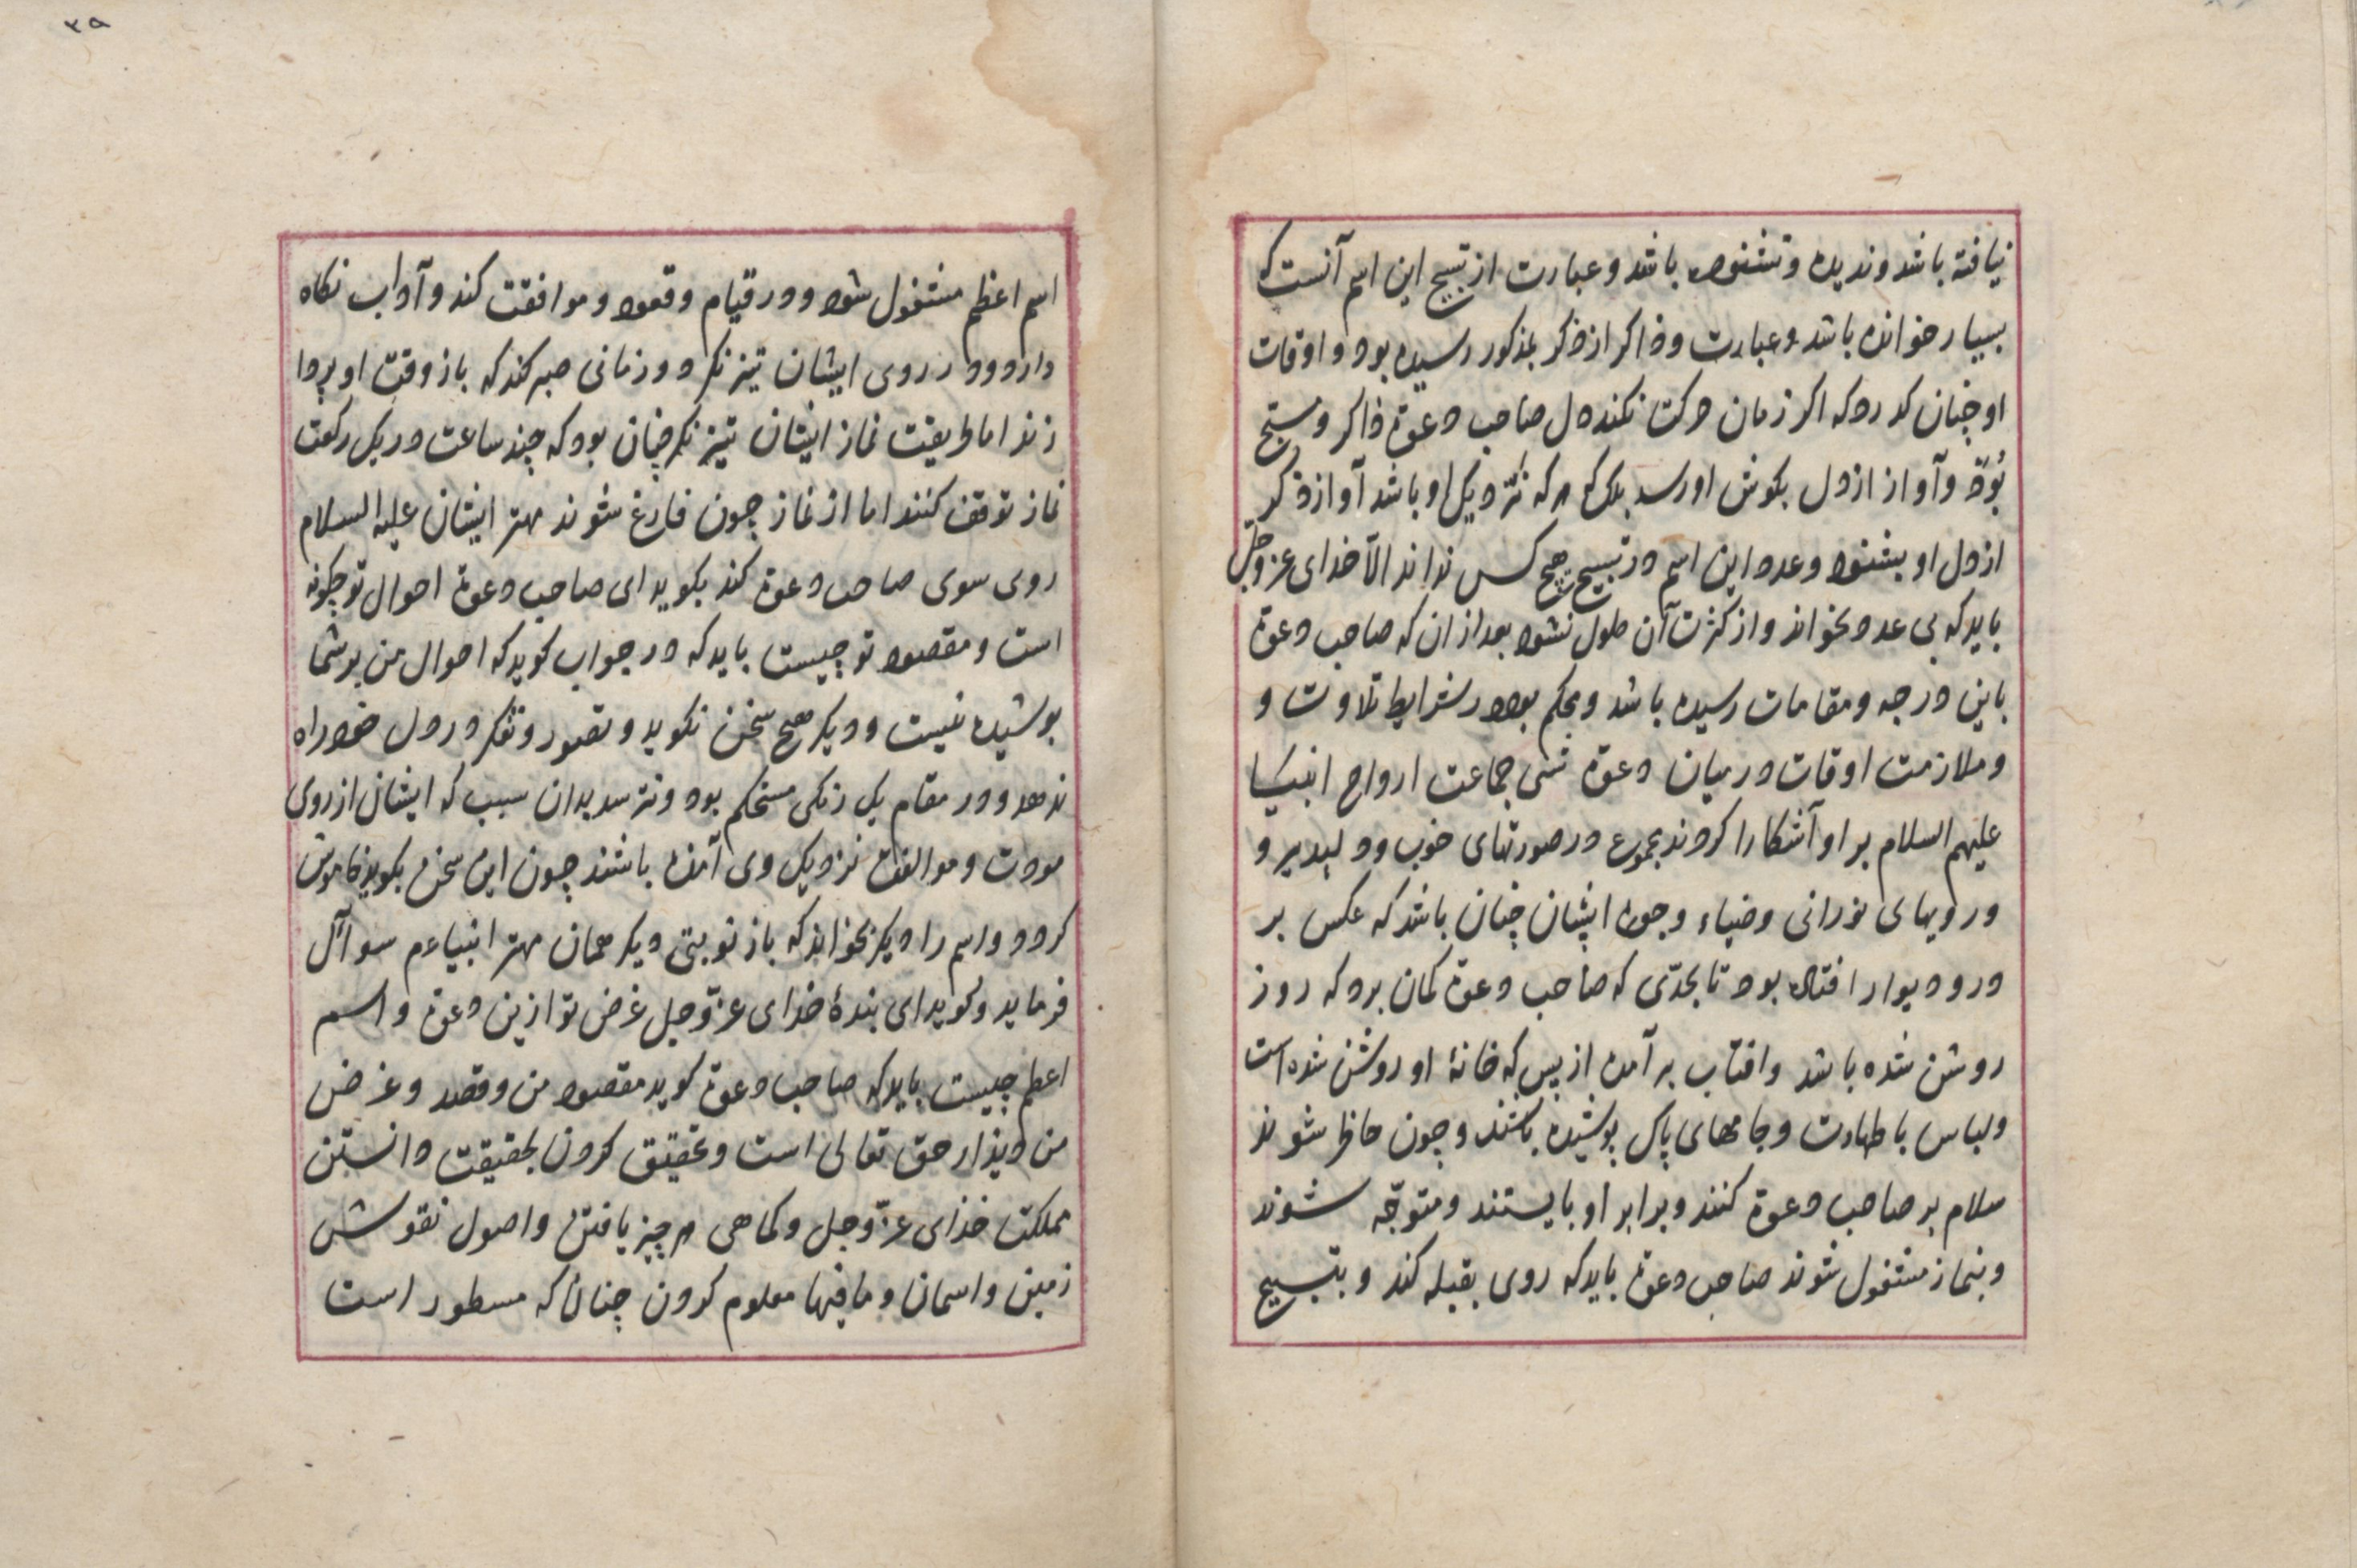 نیافته باشد و ندیده و نشنوده باشد و عبارت از تسبیح این اسم آنست که
بسیار خوانده باشد و عبارت و ذاکر از ذکر بمذکور رسیده بود و اوقات
او چنان کردد که اکر زمان حرکت نکند دل صاحب دعوة ذاکر و مسبّح
بُودّ و آواز از دل بکوش او رسد بلک هر که نزدیک او باشد آواز ذکر
از دل او بشنود و عدد این اسم در تسبیح هیچ کس نداند الّا خدای عزّ وجلّ
باید که بی عدد بخواند و از کثرت آن ملول نشود بعد از ان که صاحب دعوة
باین درجه و مقامات رسیده باشد و محکم بود در شرایط تلاوت و
و ملازمت اوقات در میان دعوة شبی جماعت ارواح انبیا
علیهم السلام بر او آشکارا کردند بمجموع در صورتهای خوب و دلپدیر و
و رویهای نورانی و ضیاء وجوه ایشان چنان باشد که عکس بر
در و دیوار افتاده بود تا بحدّی که صاحب دعوة کمان برد که روز
روشن شده باشد و افتاب بر آمده از بس که خانهٔ او روشن شده است
و لباس با طهارت و جامهای پاک پوشیده باشند و چون حاظر شوند
سلام بر صاحب دعوة کنند و برابر او بایستند و متوجّه شوند
و بنماز مشغول شوند صاحب دعوة باید که روی بقبله کند و بتسبیح
۳۵
اسم اعظم مشغول شود و در قیام و قعود و موافقت کند و آداب نکاه
دارد و در روی ایشان تیز نکرد و زمانی صبر کند که باز وقت او بردا
زند اما طریقت نماز ایشان تیز نکر چنان بود که چند ساعت در یک رکعت
نماز توقف کنند اما از نماز چون فارغ شوند مهتر ایشان علیه السلام
روی سوی صاحب دعوة کند بکوید ای صاحب دعوة احوال تو چکونه
است و مقصود تو چیست باید که در جواب کوید که احوال من بر شما
بوشیده نیست و دیکر هیچ سخن نکوید و تصور و تفکر در دل خود راه
ندهد و در مقام یک رنکی مستحکم بود و نترسد بدان سبب که ایشان از روی
مودت و موالفت نزدیک وی آمده باشند چون این سخن بکوید خاموش
کردد و اسم را دیکر نخواند که باز نوبتی دیکر همان مهتر انبیاء م سوآل
فرماید و کوید ای بندهٔ خدای عزّ وجل غرض تو ازین دعوة و اسم
اعظم چیست باید که صاحب دعوة کوید مقصود من و قصد و غرض
من دیذار حق تعالی است و تحقیق کردن بحقیقت دانستن
مملکت خذای عزّ وجل و کماهی هر چیز یافتن و اصول نقوش
زمین و اسمان و مافیها معلوم کردن چنانکه مسطور است